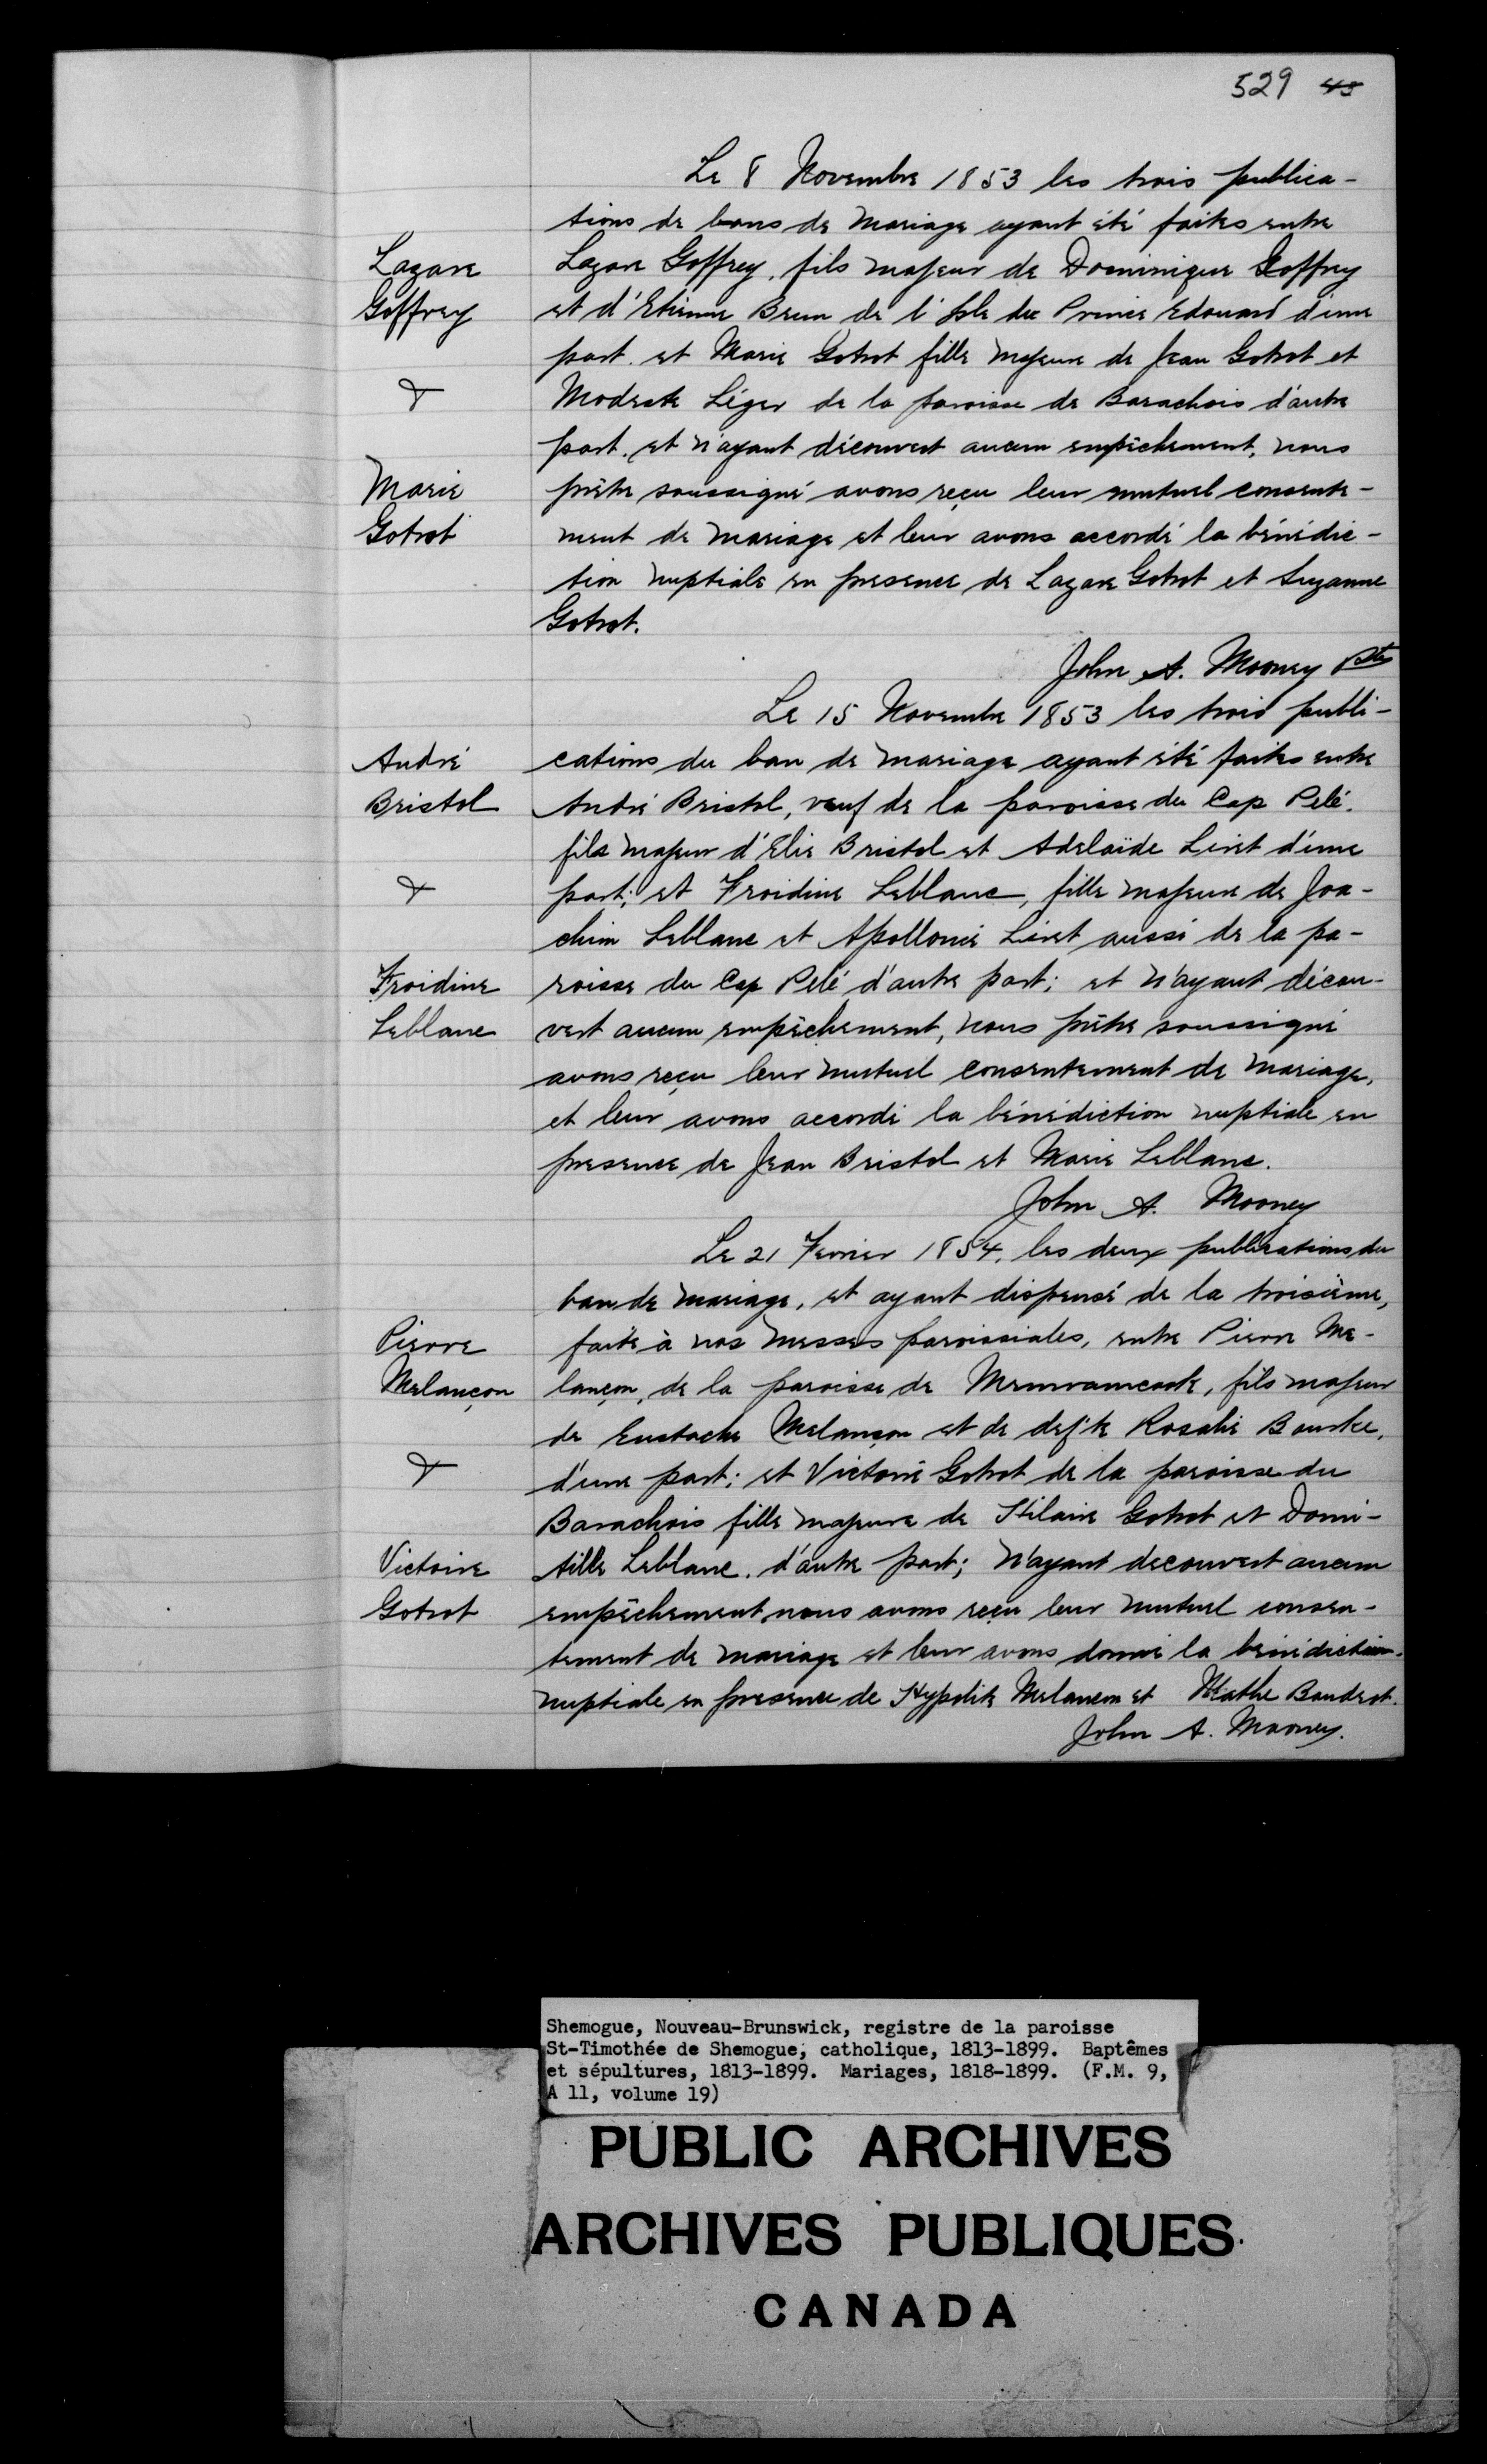 529 45
Le 8 Novembre 1853 les trois publica-
tions de bans de mariage ayant été faites entre
Lazare Goffrey, fils majeur de Dominique Goffrey
et d'Etienne Brun de l'Isle du Prince Edouard d'une
part. et Marie Gotrot fille majeure de Jean Gotrot et
Modeste Léger de la paroisse de Barachois d'autre
part. et n'ayant découvert aucun empêchement, nous
prêtre soussigné avons reçu leur mutuel consente-
ment de mariage et leur avons accordé la bénédic-
tion nuptiale en presence de Lazare Gotrot et Suzanne
Gotrot.
Lazare
Goffrey
&
Marie
Gotrot
John A. Mooney Ptre
Le 15 Novembre 1853 les trois publi-
cations du ban de mariage ayant été faites entre
André Bristol, veuf de la paroisse du Cap Pelé.
fils majeur d'Elie Bristol et Adelaïde Liret d'une
part; et Froidine Leblanc, fille majeure de Joa-
chim Leblanc et Apollonie Liret aussi de la pa-
roisse du Cap Pelé d'autre part; et n'ayant décou-
vert aucun empêchement, nous prêtre soussigné
avons reçu leur mutuel consentement de mariage,
et leur avons accordé la bénédiction nuptiale en
presence de Jean Bristol et Marie Leblanc.
André
Bristol
&
Froidine
Leblanc
John A. Mooney
Le 21 Fevrier 1854, les deux publications du
ban de mariage, et ayant dispensé de la troisième,
faite à nos messes paroissiales, entre Pierre Me-
lançon, de la paroisse de Memramcook, fils majeur
de Eustache Melançon et de defte Rosalie Bourke,
d'une part; et Victoire Gotrot de la paroisse du
Barachois fille majeure de Hilaire Gotrot et Domi-
tille Leblanc. d'autre part; n'ayant decouvert aucun
empêchement nous avons reçu leur mutuel consen-
tement de mariage et leur avons donné la bénédiction
nuptiale en presence de Hypolite Melancon et Mathe Boudrot.
Pierre
Melançon
&
Victoire
Gotrot
John A. Mooney.
Shemogue, Nouveau-Brunswick, registre de la paroisse
St-Timothée de Shemogue, catholique, 1813-1899. Baptêmes
et sépultures, 1813-1899. Mariages, 1818-1899. (F.M. 9,
A 11, volume 19)
PUBLIC ARCHIVES
ARCHIVES PUBLIQUES
CANADA